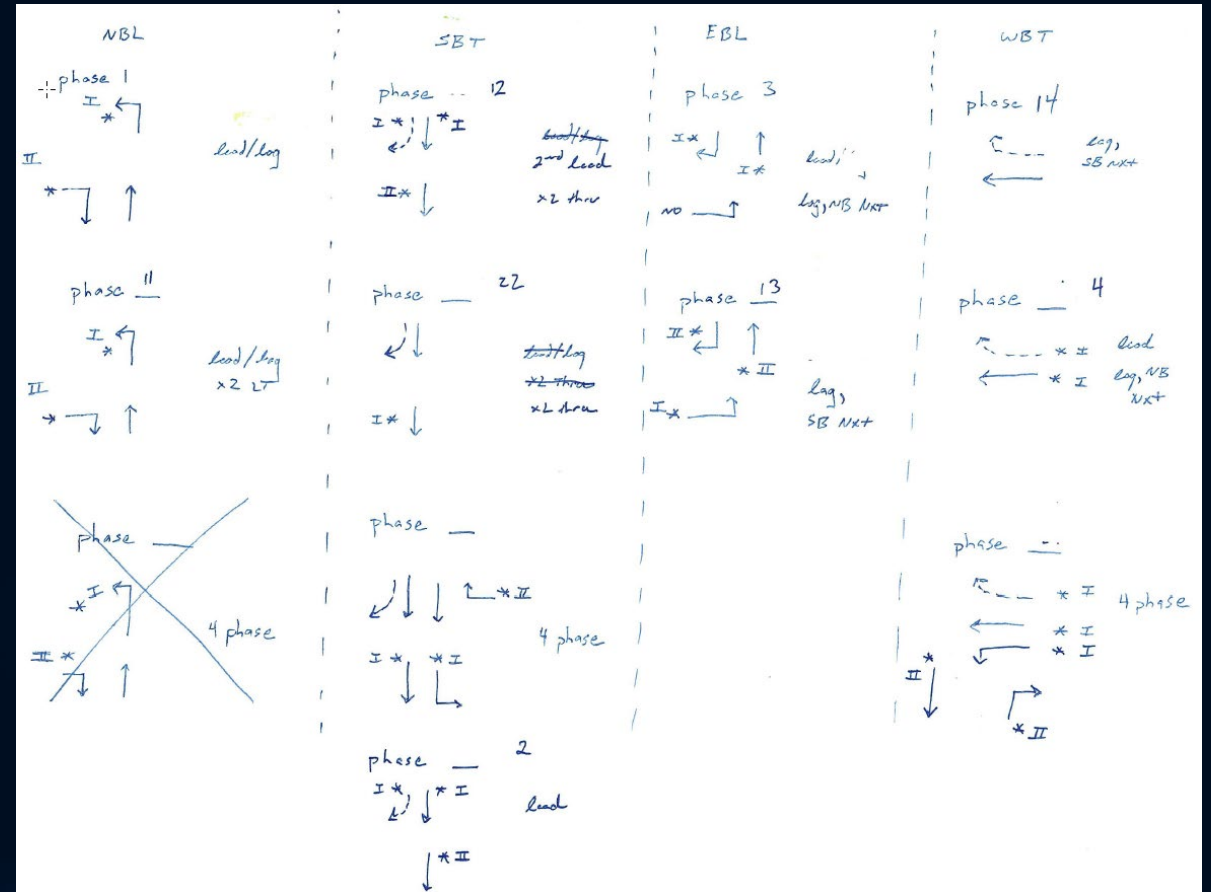 NBL
phase 1
I
*
II
*
lead/lag
phase 11
I
*
II
*
lead/lag
x2 LT
phase __
I
*
II *
4 phase
SBT
phase 12
I * * I
lead/lag
2nd lead
II *
x2 thru
phase __ 22
lead/lag
x2 thru
x2 thru
I *
phase __
* II
I * * I
4 phase
phase __ 2
I * * I
lead
* II
EBL
phase 3
I *
I *
lead,
NO
lag, NB Nxt
phase 13
II *
* II
I *
lag,
SB Nxt
WBT
phase 14
lag,
SB Nxt
phase __ 4
* I
* I
lead
lag, NB
Nxt
phase __
* I
* I
* I
4 phase
*
II
* II